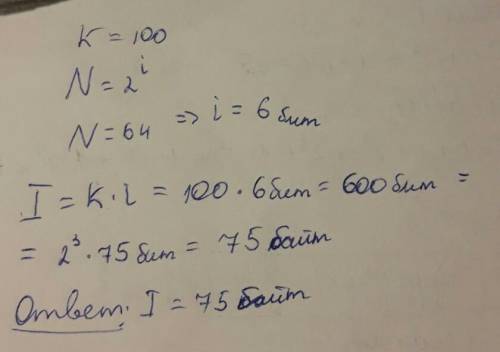 K = 100
N = 2^i
N = 64 => i = 6 бит
I = K · i = 100 · 6 бит = 600 бит =
= 2³ · 75 бит = 75 байт
Ответ: I = 75 байт